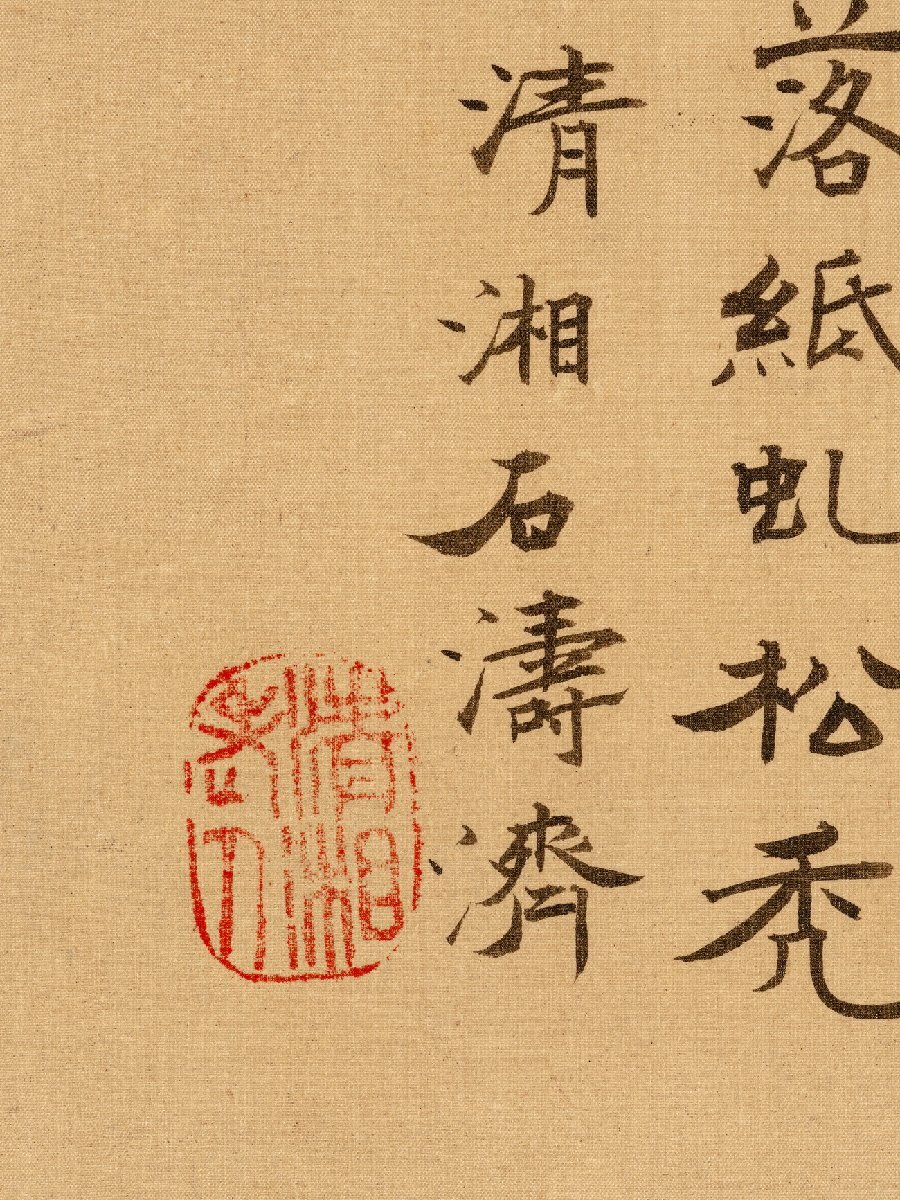 落紙虬松禿
清湘石濤濟
清湘老人